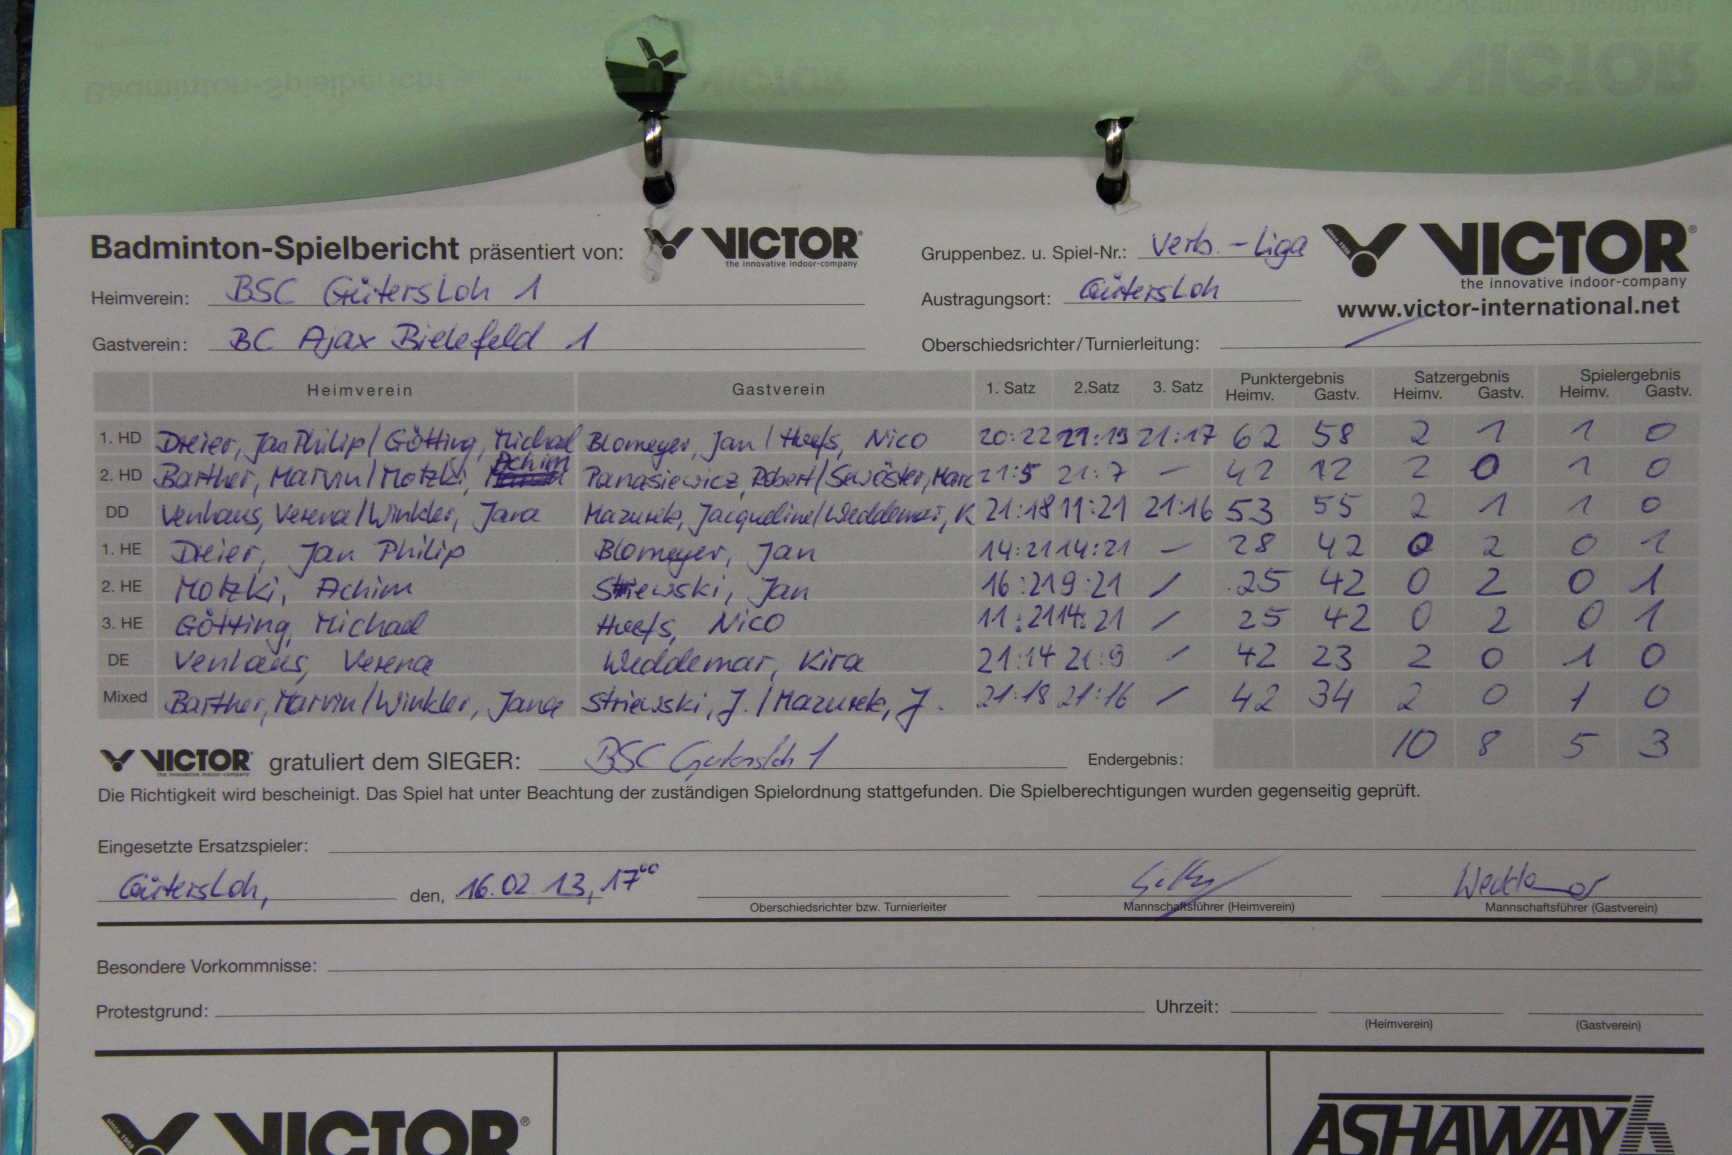 Badminton-Spielbericht präsentiert von: VICTOR® the innovative indoor-company
Gruppenbez. u. Spiel-Nr.: Verb.-Liga
VICTOR®
the innovative indoor-company
www.victor-international.net
Heimverein: BSC Gütersloh 1
Austragungsort: Gütersloh
Gastverein: BC Ajax Bielefeld 1
Oberschiedsrichter/Turnierleitung:
Heimverein Gastverein 1. Satz 2.Satz 3. Satz Punktergebnis Heimv. Gastv. Satzergebnis Heimv. Gastv. Spielergebnis Heimv. Gastv.
1. HD Dreier, Jan Philip / Götting, Michael Blomeyer, Jan / Heefs, Nico 20:22 21:19 21:17 62 58 2 1 1 0
2. HD Barther, Marvin / Motzki, Achim Panasiewicz, Robert / Sewöster, Marc 21:5 21:7 - 42 12 2 0 1 0
DD Venhaus, Verena / Winkler, Jana Mazurek, Jacqueline / Weddemar, K 21:18 11:21 21:16 53 55 2 1 1 0
1. HE Dreier, Jan Philip Blomeyer, Jan 14:21 14:21 - 28 42 0 2 0 1
2. HE Motzki, Achim Striewski, Jan 16:21 9:21 / 25 42 0 2 0 1
3. HE Götting, Michael Heefs, Nico 11:21 14:21 / 25 42 0 2 0 1
DE Venhaus, Verena Weddemar, Kira 21:14 21:9 / 42 23 2 0 1 0
Mixed Barther, Marvin / Winkler, Jana Striewski, J. / Mazurek, J. 21:18 21:16 / 42 34 2 0 1 0
VICTOR® the innovative indoor-company gratuliert dem SIEGER: BSC Gütersloh 1 Endergebnis: 10 8 5 3
Die Richtigkeit wird bescheinigt. Das Spiel hat unter Beachtung der zuständigen Spielordnung stattgefunden. Die Spielberechtigungen wurden gegenseitig geprüft.
Eingesetzte Ersatzspieler:
Gütersloh, den, 16.02.13, 17⁰⁰ Weddemar
Oberschiedsrichter bzw. Turnierleiter Mannschaftsführer (Heimverein) Mannschaftsführer (Gastverein)
Besondere Vorkommnisse:
Protestgrund: Uhrzeit:
(Heimverein) (Gastverein)
since 1968 VICTOR® ASHAWAY